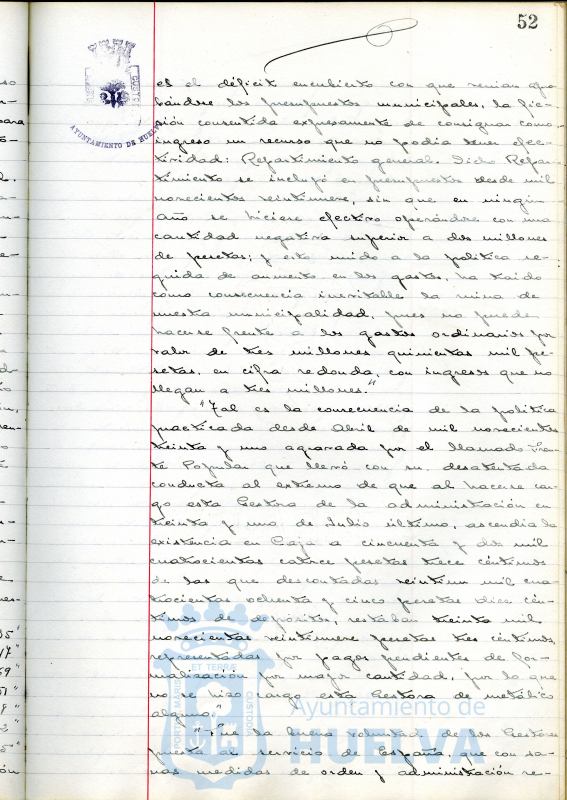 52
AYUNTAMIENTO DE HUELVA
el el déficit encubierto con que venian apro
bándose los presupuestos municipales, la fic-
ción consentida expresamente de consignar como
ingreso un recurso que no podia tener efec-
tividad: Repartimiento general. Dicho Repar-
timiento se incluyó en presupuestos desde mil
novecientos veintinueve, sin que en ningún
año se hiciese efectivo operándose con una
cantidad negativa superior a dos millones
de pesetas; y esto unido a la politica se-
guida de aumento en los gastos, ha traido
como consecuencia inevitable la ruina de
nuestra municipalidad, pues no puede
hacerse frente a los gastos ordinarios por
valor de tres millones quinientas mil pe-
setas, en cifra redonda, con ingresos que no
llegan a tres millones."
"Tal es la consecuencia de la politica
practicada desde Abril de mil novecientos
treinta y uno agravada por el llamado Fren-
te Popular que llevó con su desatentada
conducta al extremo de que al hacerse car-
go esta Gestora de la administración en
treinta y uno de Julio último, ascendia la
existencia en Caja a cincuenta y dos mil
cuatrocientas catorce pesetas trece céntimos
de las que descontadas veintiun mil cua
trocientas ochenta y cinco pesetas diez cén-
timos de depósitos, restaban treinta mil
novecientas veintinueve pesetas tres céntimos,
representadas por pagos pendientes de for-
malización por mayor cantidad, por lo que
no se hizo cargo esta Gestora de metálico
alguno."
la buena voluntad de los Gestores
puesta al servicio de España, que con sa-
nas medidas de orden y administración re-
PORTUS MARIS ET TERRAE CUSTODIA
Ayuntamiento de
HUELVA